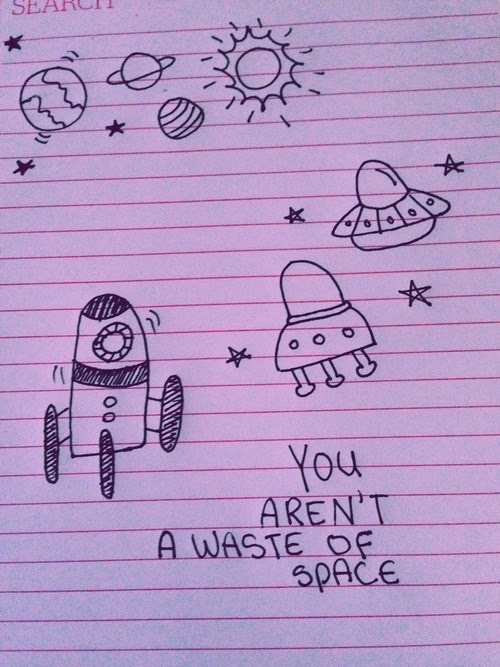 SEARCH
YOU
AREN'T
A WASTE OF
SPACE